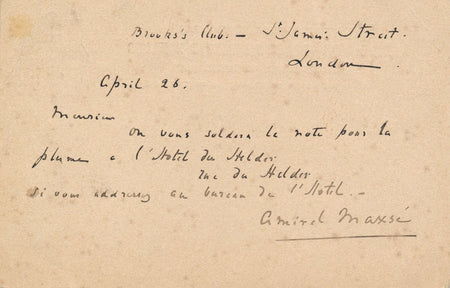 Brooks's Club. — St James' Street.
London.
April 26.
Monsieur
on vous soldera la note pour la
plume a l'Hotel du Helder
rue du Helder
si vous addressez au bureau de l'Hotel. —
Amiral Maxsé